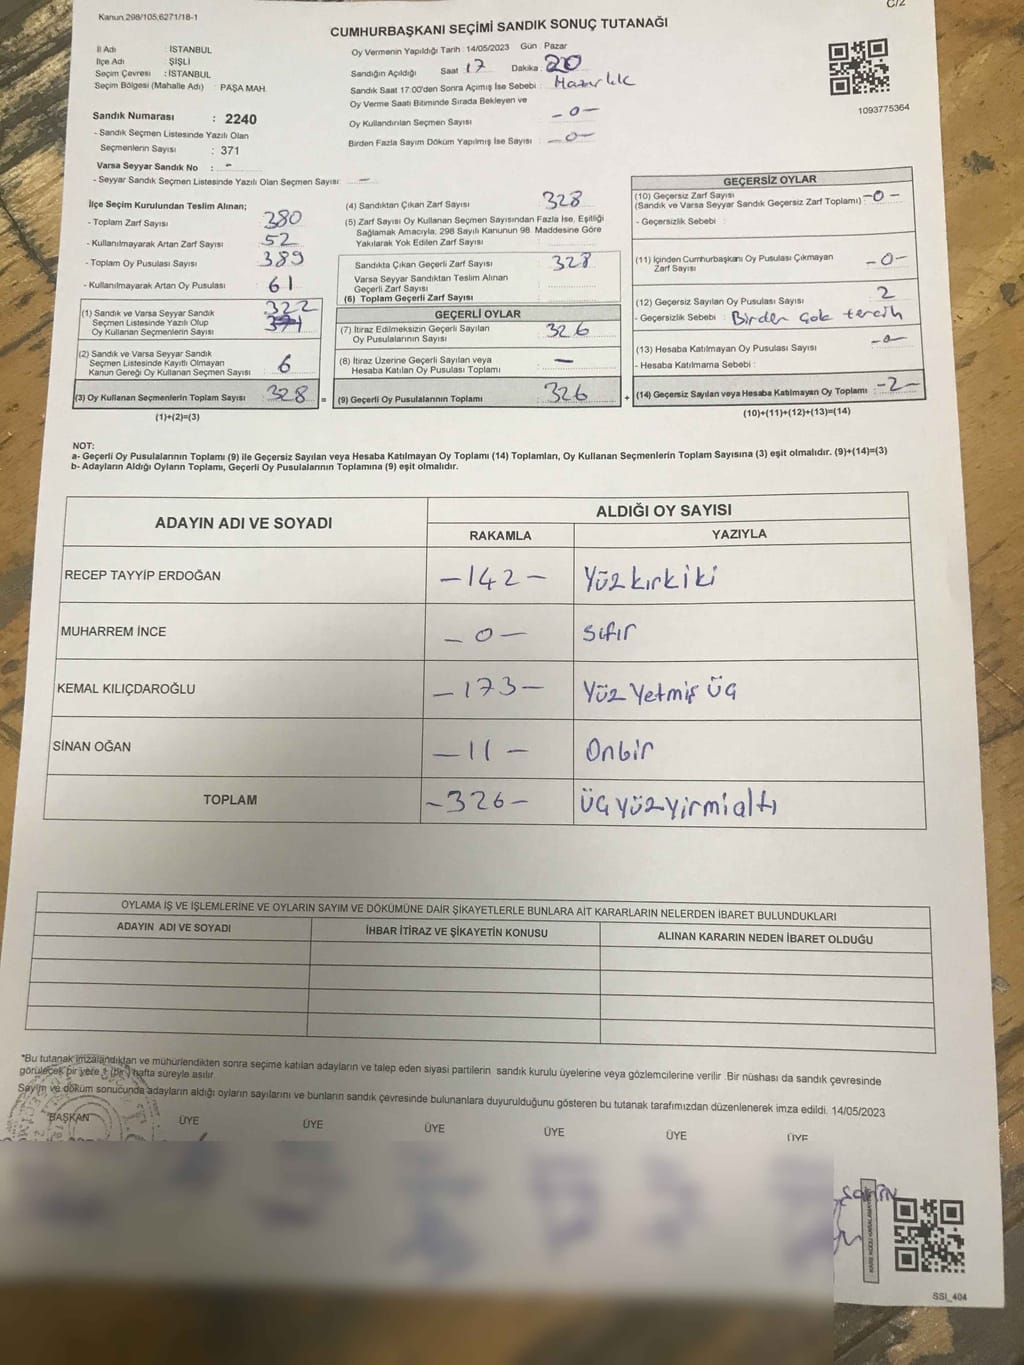 Kanun.298/105,6271/18-1
C/2
CUMHURBAŞKANI SEÇİMİ SANDIK SONUÇ TUTANAĞI
İl Adı : İSTANBUL
İlçe Adı : ŞİŞLİ
Seçim Çevresi : İSTANBUL
Seçim Bölgesi (Mahalle Adı) : PAŞA MAH.
Sandık Numarası : 2240
- Sandık Seçmen Listesinde Yazılı Olan
Seçmenlerin Sayısı : 371
Varsa Seyyar Sandık No : -
- Seyyar Sandık Seçmen Listesinde Yazılı Olan Seçmen Sayısı: -
Oy Vermenin Yapıldığı Tarih : 14/05/2023 Gün : Pazar
Sandığın Açıldığı Saat : 17 Dakika : 20
Sandık Saat 17:00'den Sonra Açımış İse Sebebi : Hazırlık
Oy Verme Saati Bitiminde Sırada Bekleyen ve
Oy Kullandırılan Seçmen Sayısı : -0-
Birden Fazla Sayım Döküm Yapılmış İse Sayısı : -0-
1093775364
İlçe Seçim Kurulundan Teslim Alınan;
- Toplam Zarf Sayısı : 380
- Kullanılmayarak Artan Zarf Sayısı : 52
- Toplam Oy Pusulası Sayısı : 389
- Kullanılmayarak Artan Oy Pusulası : 61
(1) Sandık ve Varsa Seyyar Sandık
Seçmen Listesinde Yazılı Olup
Oy Kullanan Seçmenlerin Sayısı : 322
(2) Sandık ve Varsa Seyyar Sandık
Seçmen Listesinde Kayıtlı Olmayan
Kanun Gereği Oy Kullanan Seçmen Sayısı : 6
(3) Oy Kullanan Seçmenlerin Toplam Sayısı : 328 =
(1)+(2)=(3)
(4) Sandıktan Çıkan Zarf Sayısı : 328
(5) Zarf Sayısı Oy Kullanan Seçmen Sayısından Fazla İse, Eşitliği
Sağlamak Amacıyla; 298 Sayılı Kanunun 98. Maddesine Göre
Yakılarak Yok Edilen Zarf Sayısı :
Sandıkta Çıkan Geçerli Zarf Sayısı : 328
Varsa Seyyar Sandıktan Teslim Alınan
Geçerli Zarf Sayısı :
(6) Toplam Geçerli Zarf Sayısı :
GEÇERLİ OYLAR
(7) İtiraz Edilmeksizin Geçerli Sayılan
Oy Pusulalarının Sayısı : 326
(8) İtiraz Üzerine Geçerli Sayılan veya
Hesaba Katılan Oy Pusulası Toplamı : -
(9) Geçerli Oy Pusulalarının Toplamı : 326 +
GEÇERSİZ OYLAR
(10) Geçersiz Zarf Sayısı
(Sandık ve Varsa Seyyar Sandık Geçersiz Zarf Toplamı) : -0-
- Geçersizlik Sebebi :
(11) İçinden Cumhurbaşkanı Oy Pusulası Çıkmayan
Zarf Sayısı : -0-
(12) Geçersiz Sayılan Oy Pusulası Sayısı : 2
- Geçersizlik Sebebi : Birden çok tercih
(13) Hesaba Katılmayan Oy Pusulası Sayısı : -0-
- Hesaba Katılmama Sebebi :
(14) Geçersiz Sayılan veya Hesaba Katılmayan Oy Toplamı : -2-
(10)+(11)+(12)+(13)=(14)
NOT:
a- Geçerli Oy Pusulalarının Toplamı (9) ile Geçersiz Sayılan veya Hesaba Katılmayan Oy Toplamı (14) Toplamları, Oy Kullanan Seçmenlerin Toplam Sayısına (3) eşit olmalıdır. (9)+(14)=(3)
b- Adayların Aldığı Oyların Toplamı, Geçerli Oy Pusulalarının Toplamına (9) eşit olmalıdır.
ADAYIN ADI VE SOYADI
ALDIĞI OY SAYISI
RAKAMLA YAZIYLA
RECEP TAYYİP ERDOĞAN -142- Yüzkırkiki
MUHARREM İNCE -0- Sıfır
KEMAL KILIÇDAROĞLU -173- Yüz Yetmiş üç
SİNAN OĞAN -11- Onbir
TOPLAM -326- üçyüzyirmialtı
OYLAMA İŞ VE İŞLEMLERİNE VE OYLARIN SAYIM VE DÖKÜMÜNE DAİR ŞİKAYETLERLE BUNLARA AİT KARARLARIN NELERDEN İBARET BULUNDUKLARI
ADAYIN ADI VE SOYADI
İHBAR İTİRAZ VE ŞİKAYETİN KONUSU
ALINAN KARARIN NEDEN İBARET OLDUĞU
*Bu tutanak imzalandıktan ve mühürlendikten sonra seçime katılan adayların ve talep eden siyasi partilerin sandık kurulu üyelerine veya gözlemcilerine verilir .Bir nüshası da sandık çevresinde
görülecek bir yere 1 (bir) hafta süreyle asılır.
Sayım ve döküm sonucunda adayların aldığı oyların sayılarını ve bunların sandık çevresinde bulunanlara duyurulduğunu gösteren bu tutanak tarafımızdan düzenlenerek imza edildi. 14/05/2023
BAŞKAN ÜYE ÜYE ÜYE ÜYE ÜYE ÜYE
SSI_404